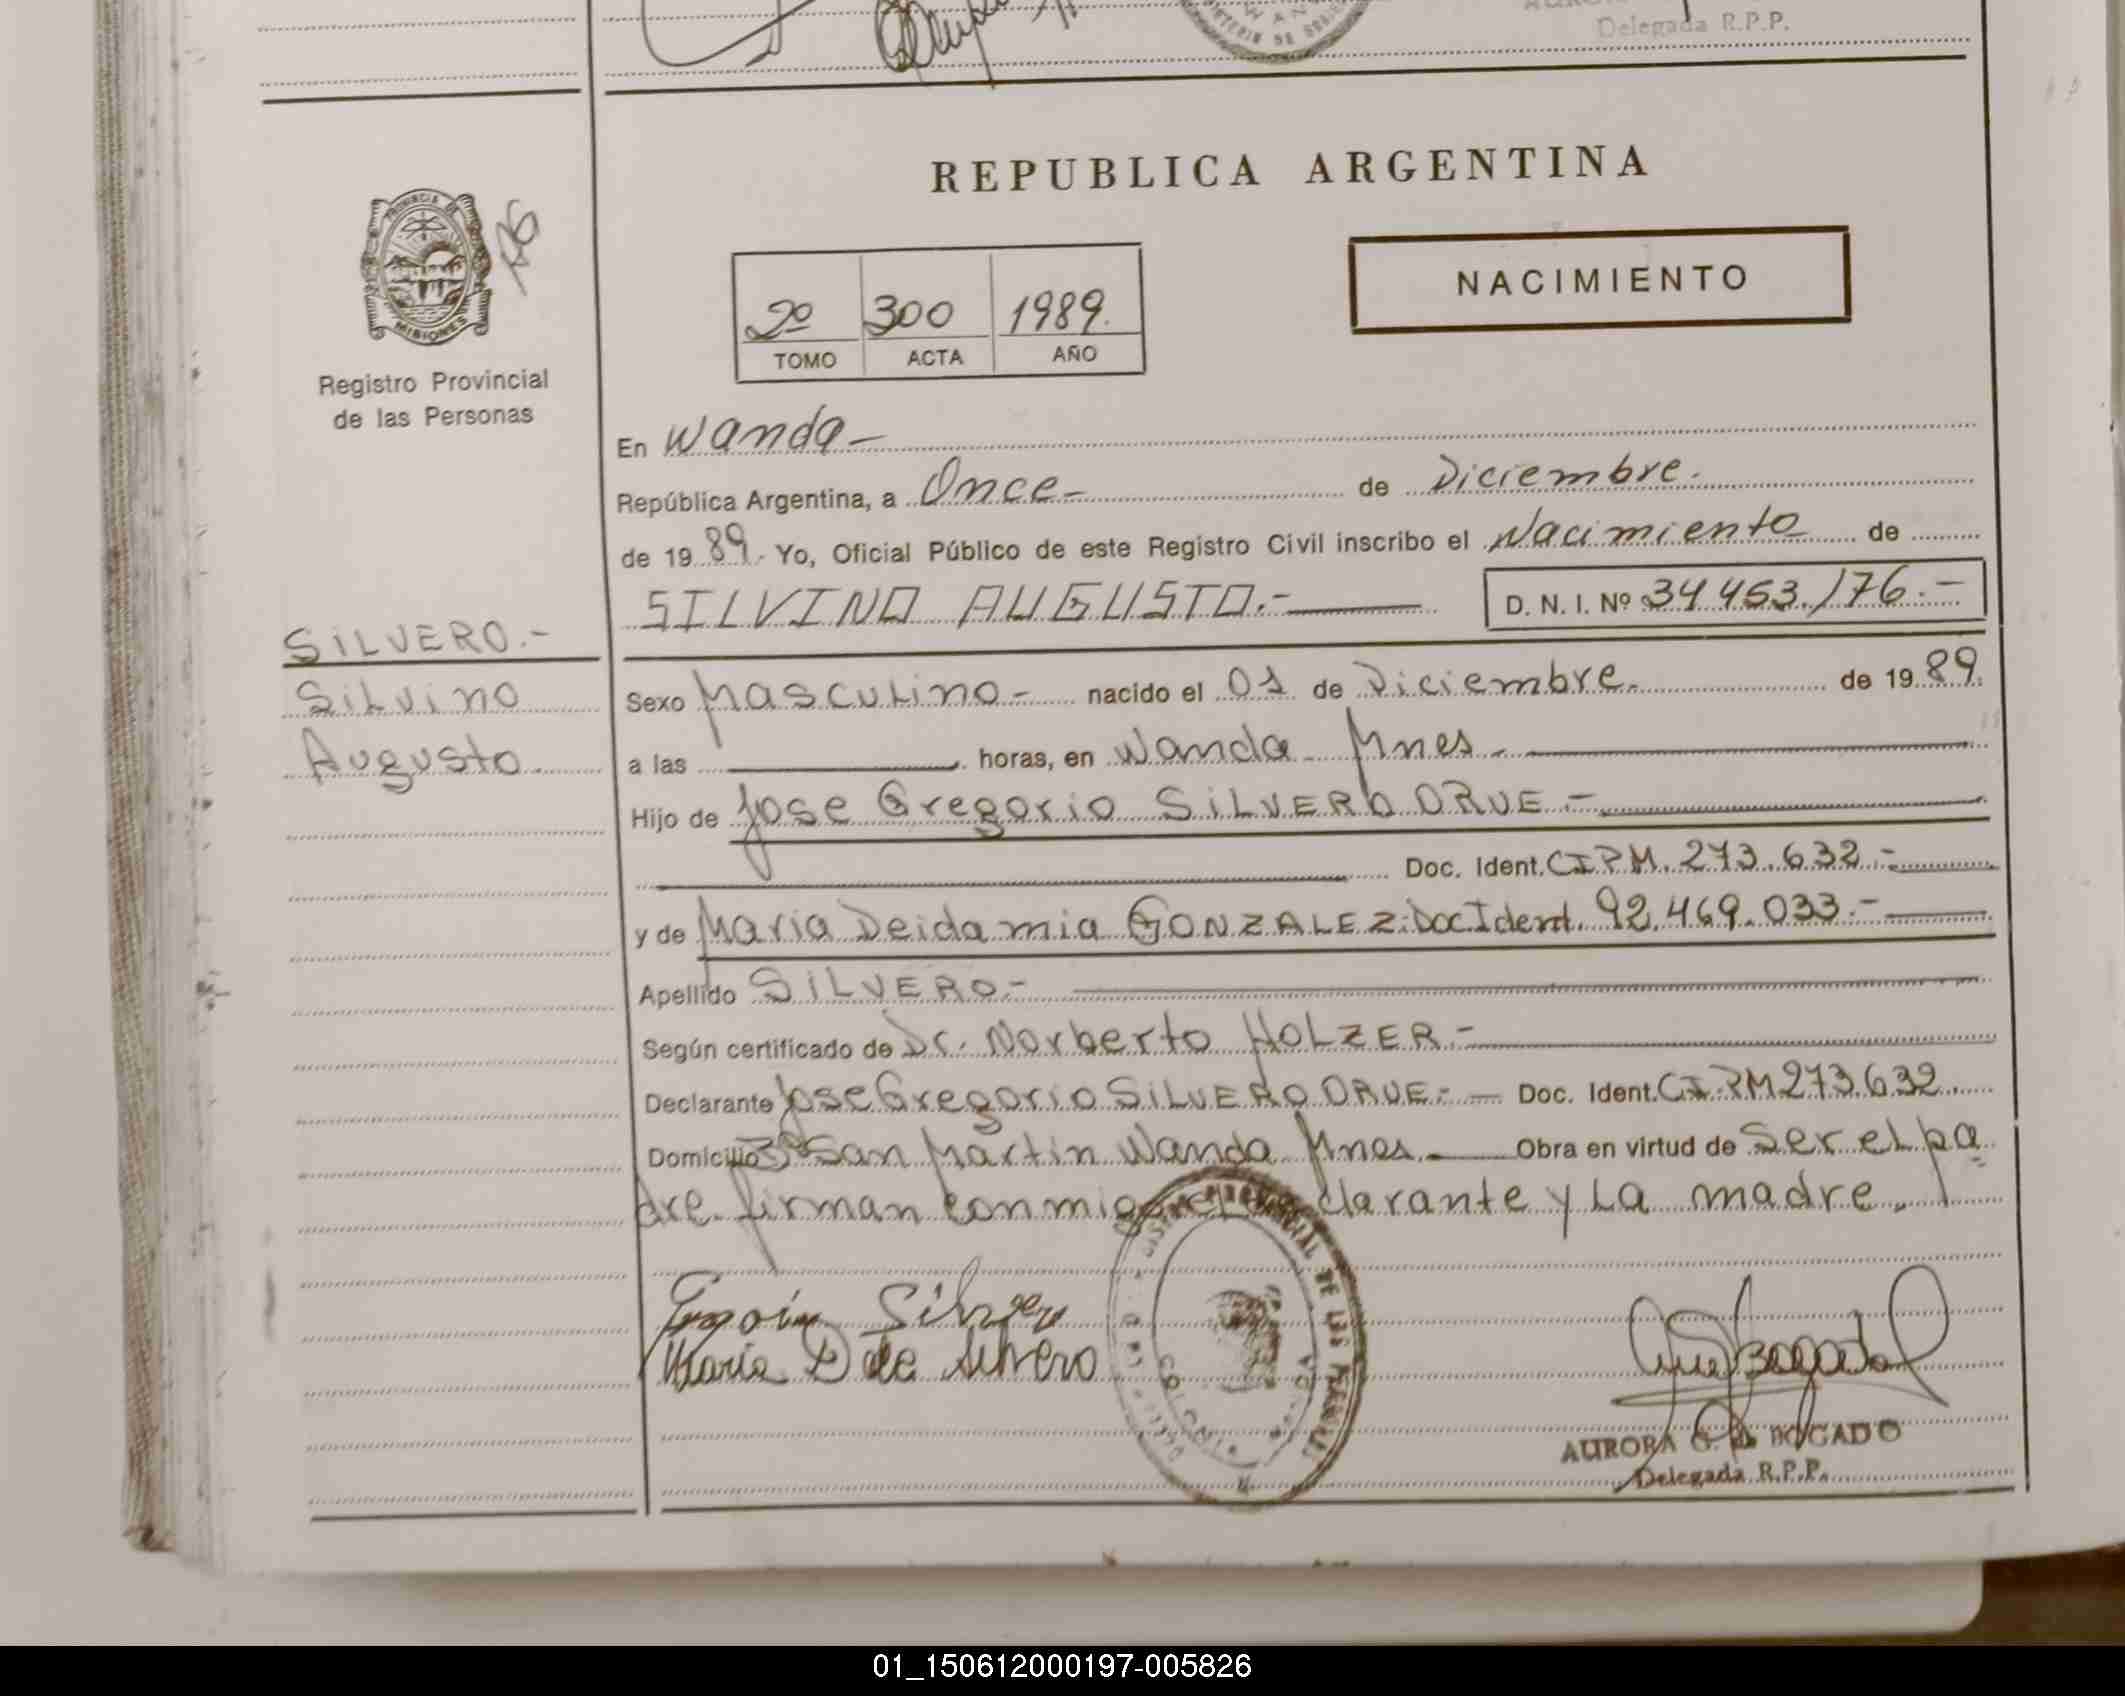 Delegada R.P.P.
REPUBLICA ARGENTINA
PROVINCIA DE
MISIONES
Registro Provincial
de las Personas
NACIMIENTO
2º 300 1989.
TOMO ACTA AÑO
En Wanda-
República Argentina, a Once- de Diciembre.
de 1989. Yo, Oficial Público de este Registro Civil inscribo el Nacimiento de
SILVINO AUGUSTO.- D. N. I. Nº 34 453./76.-
SILVERO.-
Silvino
Augusto
Sexo Masculino- nacido el 01 de Diciembre. de 1989.
a las horas, en Wanda Mnes.
Hijo de Jose Gregorio SILVERO ORUE.-
Doc. Ident. CIPM. 273.632.-
y de Maria Deidamia GONZALEZ. Doc Ident. 92.469.033.-
Apellido SILVERO.-
Según certificado de Dr. Norberto HOLZER.-
Declarante Jose Gregorio SILVERO ORUE.- Doc. Ident. CI.PM 273.632.
Domicilio Bº San Martin Wanda Mnes. Obra en virtud de Ser el pa
dre. firman conmigo el declarante y La madre.
Silvero
Maria D de Silvero
AURORA G. de BOGADO
Delegada R.P.P.
01_150612000197-005826